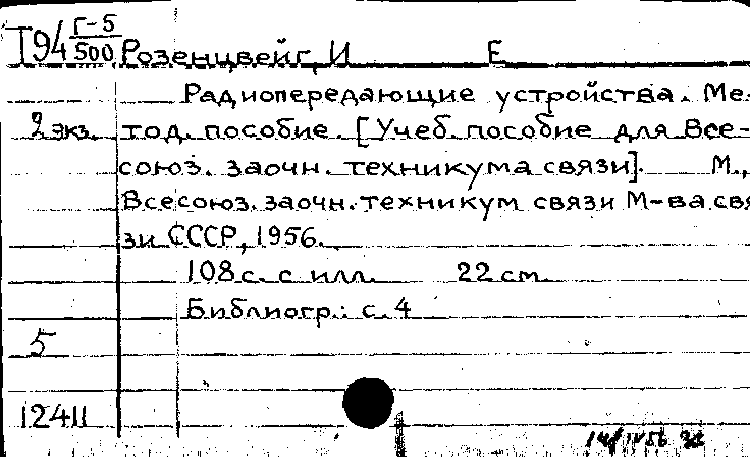 Г-5
I94 500 Розенцвейг, И Е
Радиопередающие устройства. Ме-
2 экз. тод. пособие. [Учеб. пособие для Все-
союз. заочн. техникума связи]. М.,
Всесоюз. заочн. техникум связи М-ва свя
зи СССР, 1956.
108 с. с илл. 22 см
Библиогр.: с. 4
5
12411